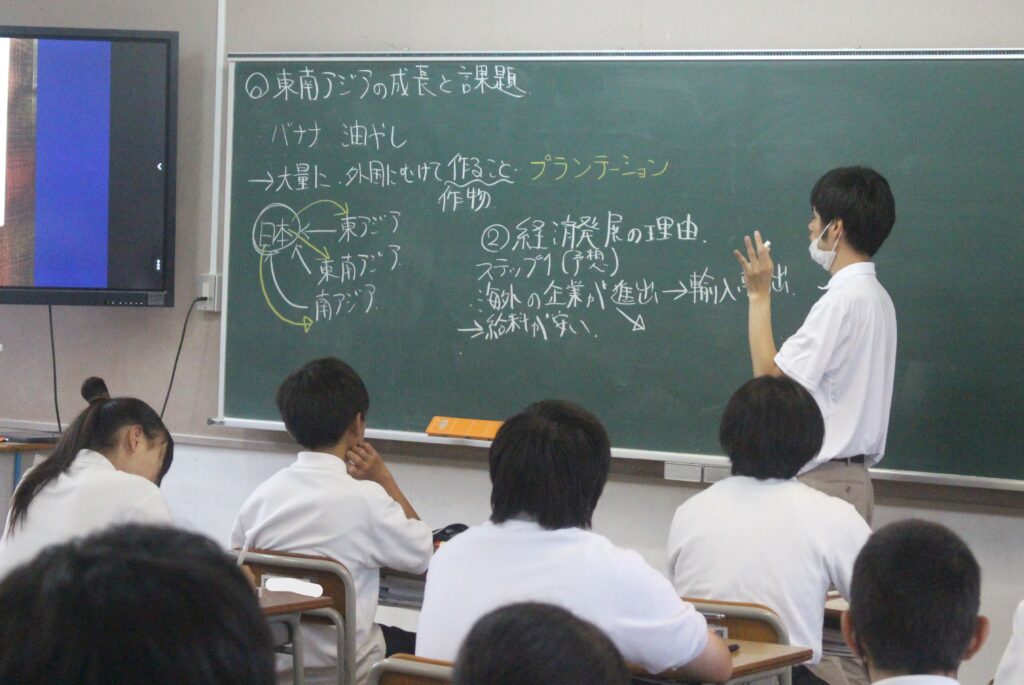 ① 東南アジアの成長と課題
バナナ 油やし
→大量に 外国にむけて作ること プランテーション
作物
日本
東アジア
東南アジア
南アジア
②経済発展の理由
ステップ1(予想)
海外の企業が進出→輸入 出
→給料が安い